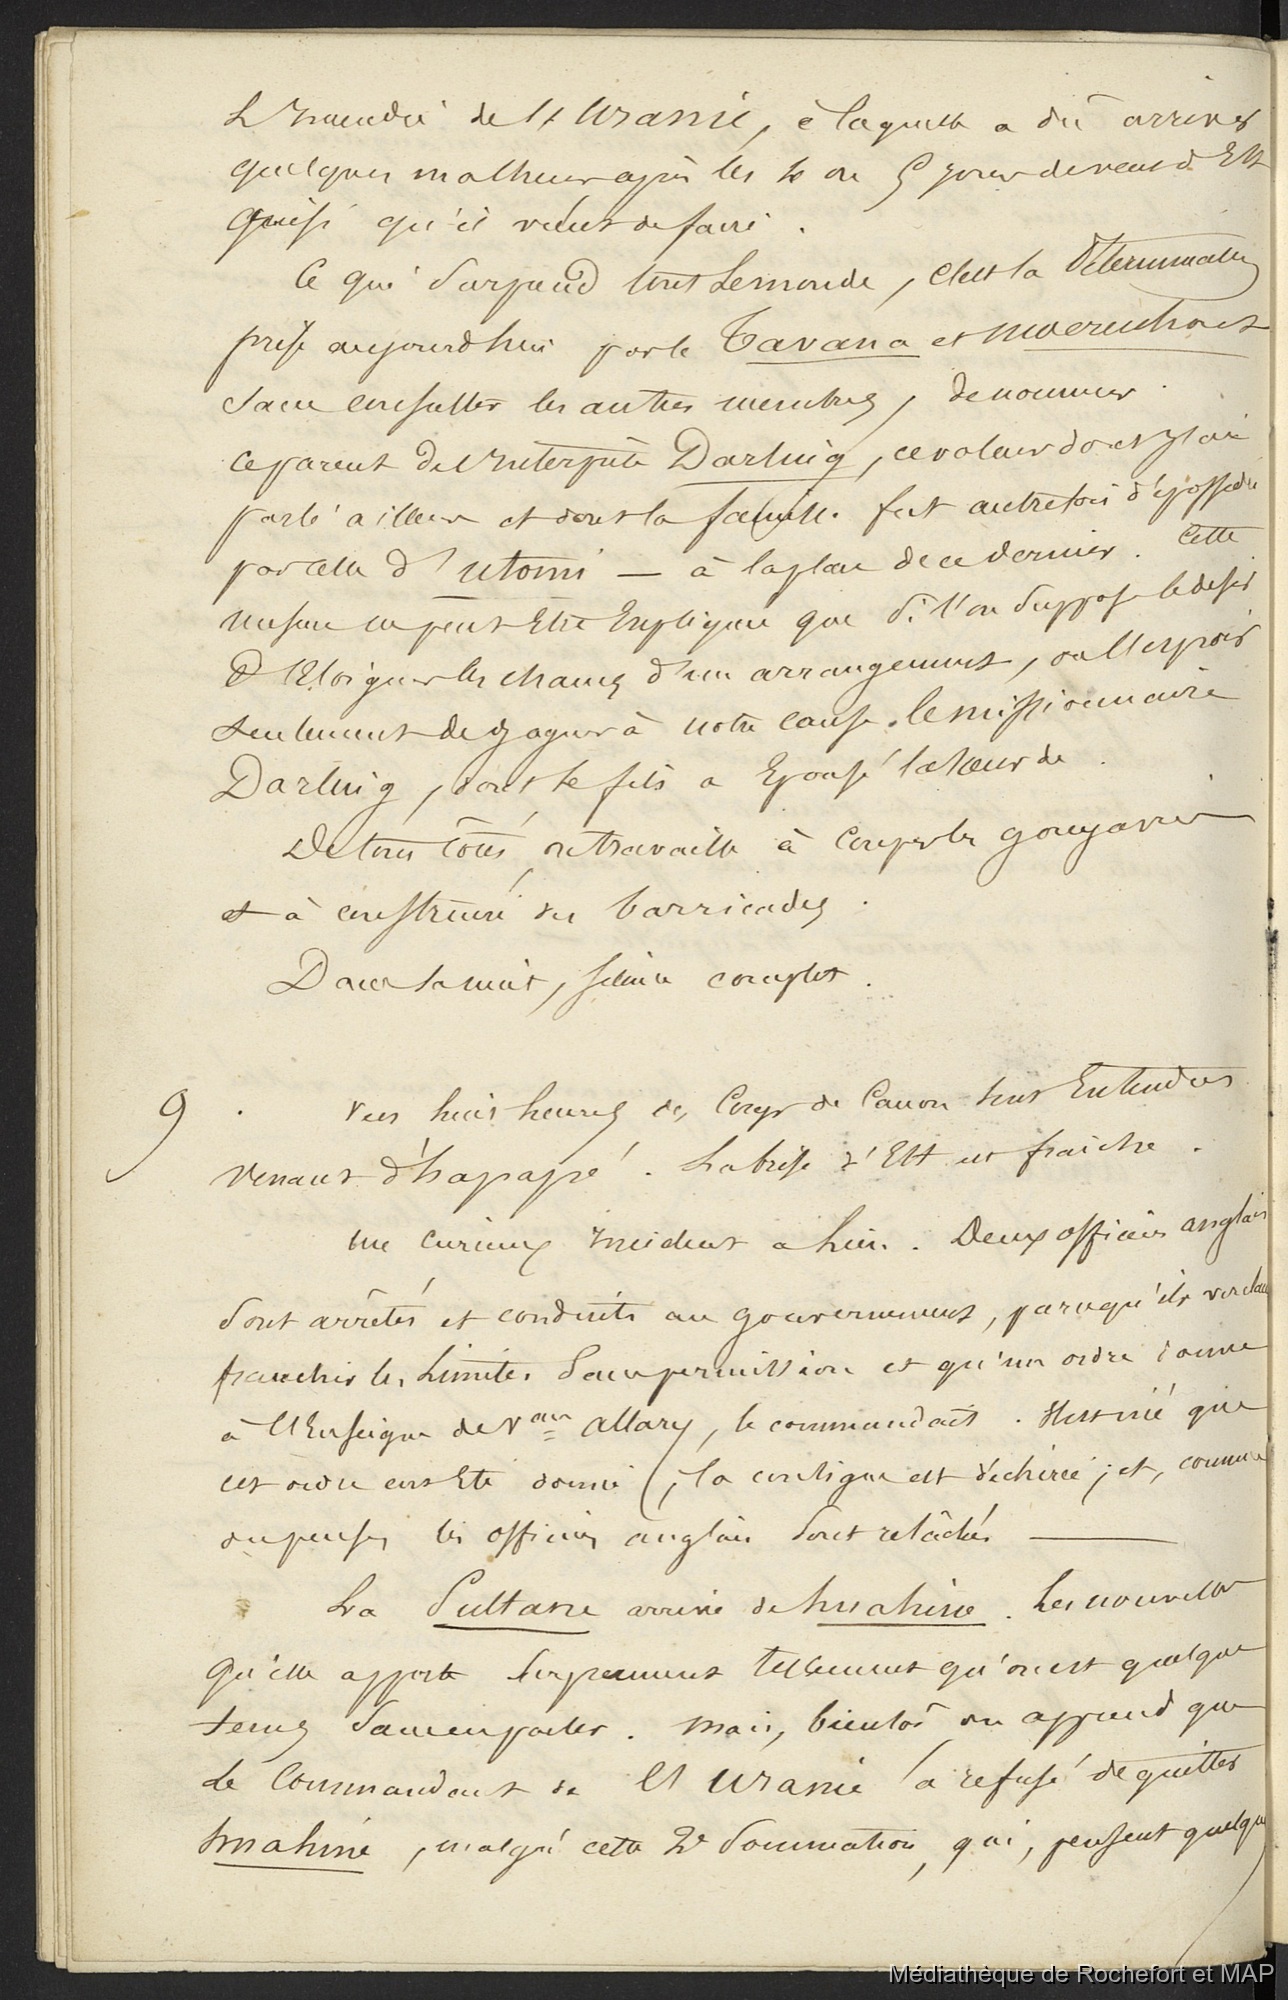 L'Incendie de l'Uranie, à laquelle a dû arriver
quelques malheurs après les 4 ou 5 jours de vent d'Est
qu'il vient de faire.
Ce qui surprend tout le monde, c'est la détermination
prise aujourd'hui par le Tavana et
sans consulter les autres membres, de nommer
ce parent de l'interprète Darling, ce voleur dont j'ai
parlé ailleurs et dont la famille fut autrefois dépossédée
par celle d'Utomi — à la place de ce dernier. Cette
mesure ne peut être expliquée que si l'on suppose le désir
d'éloigner les chances d'un arrangement, ou l'espoir
seulement de gagner à notre cause le missionnaire
Darling, dont le fils a épousé la sœur de
De tous côtés, on travaille à couper les goyaviers
et à construire des barricades.
Dans la nuit, silence complet.
9. Vers huit heures des coups de canon sont entendus
venant d'hapapé. La brise d'Est est fraîche.
Un curieux incident a lieu. Deux officiers anglais
sont arrêtés et conduits au gouvernement, parcequ'ils
franchir les limites sans permission et qu'un ordre donné
à l'Enseigne de Vau Allary, le commandait. Il est nié que
cet ordre ait été donné, la consigne est déchirée; et, comme
on pense, les officiers anglais sont relâchés —
La Sultane arrive de huahine. Les nouvelles
qu'elle apporte surprennent tellement qu'on est quelque
tems sans en parler. Mais, bientôt, on apprend que
le Commandant de l'Uranie a refusé de quitter
huahine, malgré cette 2e Sommation, qui, pensent quelques
Médiathèque de Rochefort et MAP